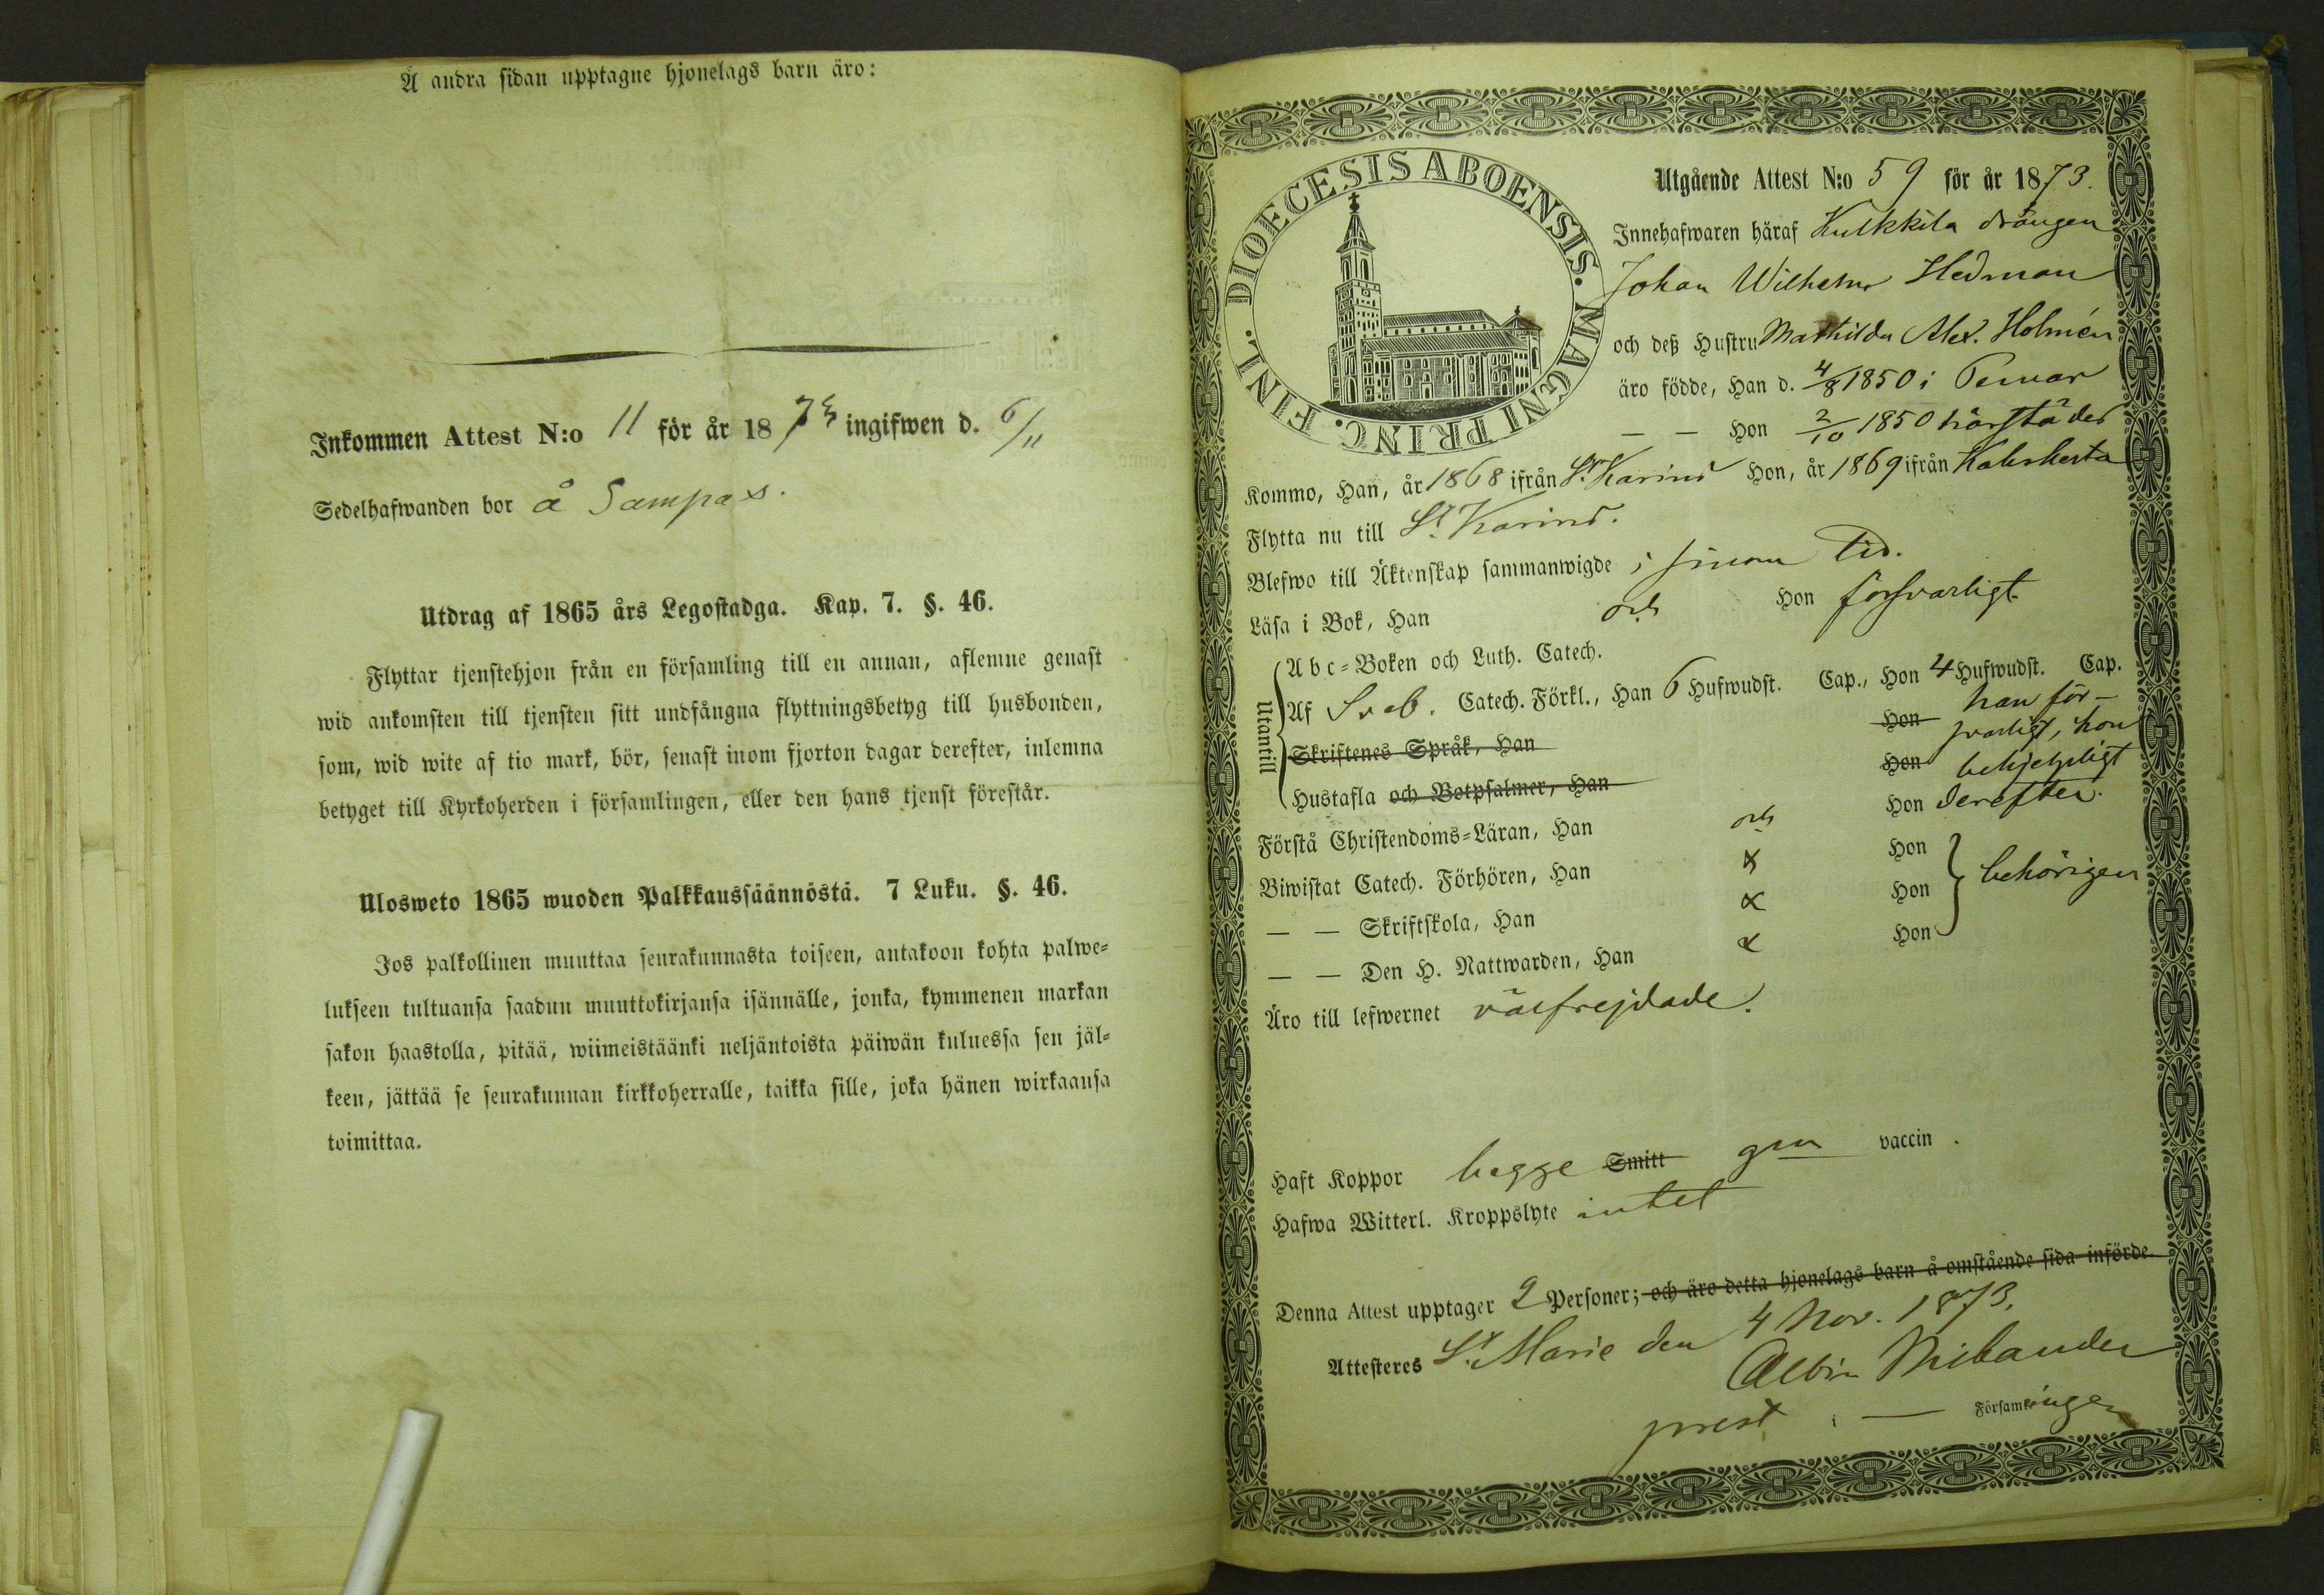 Å andra sidan upptagne hjonelags barn äro:
Inkommen Attest N:o 11 för år 1873 ingifwen d. 6/11
Sedelhafwanden bor å Sampax.
Utdrag af 1865 års Legostadga. Kap. 7. §. 46.
Flyttar tjenstehjon från en församling till en annan, aflemne genast
wid ankomsten till tjensten sitt undfångna flyttningsbetyg till husbonden,
som, wid wite af tio mark, bör, senast inom fjorton dagar derefter, inlemna
betyget till Kyrkoherden i församlingen, eller den hans tjenst förestår.
Ulosweto 1865 wuoden Palkkaussäännöstä. 7 Luku. §. 46.
Jos palkollinen muuttaa seurakunnasta toiseen, antakoon kohta palwe-
lukseen tultuansa saadun muuttokirjansa isännälle, jonka, kymmenen markan
sakon haastolla, pitää, wiimeistäänki neljäntoista päiwän kuluessa sen jäl-
keen, jättää se seurakunnan kirkkoherralle, taikka sille, joka hänen wirkaansa
toimittaa.
DIOECESIS ABOENSIS. MAGNI PRINC. FINL.
Utgående Attest N:o 59 för år 1873.
Innehafwaren häraf Kulkkila drängen
Johan Wilhelm Hedman
och deß Hustru Mathilda Alex. Holmén
äro födde, Han d. 4/8 1850 i Pemar
— — Hon 2/10 1850 härstädes
Kommo, Han, år 1868 ifrån St Karins Hon, år 1869 ifrån Kakskerta
Flytta nu till St Karins.
Blefwo till Äktenskap sammanwigde i sinom tid.
Läsa i Bok, Han och Hon försvarligt
Utantill
Abc-Boken och Luth. Catech.
Af Sveb. Catech. Förkl., Han 6 Hufwudst. Cap., Hon 4 Hufwudst. Cap.
Skriftenes Språk, Han Hon han för-
svarligt, hon
Hustafla och Botpsalmer, Han Hon behjelpligt
Förstå Christendoms-Läran, Han och Hon derefter.
Biwistat Catech. Förhören, Han Hon
— — Skriftskola, Han Hon behörigen
— — Den H. Nattwarden, Han Hon
Äro till lefwernet välfrejdade.
Haft Koppor begge Smitt gm vaccin.
Hafwa Witterl. Kroppslyte intet
Denna Attest upptager 2 Personer; och äro detta hjonelags barn å omstående sida införde.
Attesteres St Marie den 4 Nov. 1873.
Albin
prest i — Församlingen